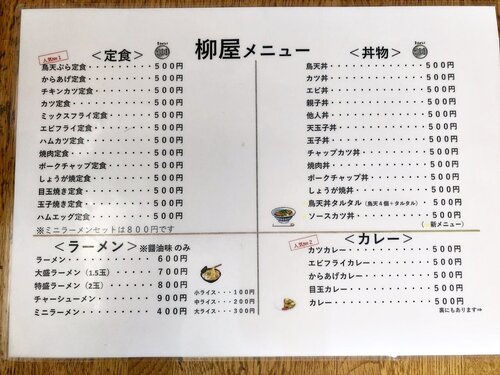 柳屋メニュー
人気No.1
＜定食＞
鳥天ぷら定食・・・・・500円
からあげ定食・・・・・500円
チキンカツ定食・・・・500円
カツ定食・・・・・・・500円
ミックスフライ定食・・500円
エビフライ定食・・・・500円
ハムカツ定食・・・・・500円
焼肉定食・・・・・・・500円
ポークチャップ定食・・500円
しょうが焼定食・・・・500円
目玉焼き定食・・・・・500円
玉子焼き定食・・・・・500円
ハムエッグ定食・・・・500円
※ミニラーメンセットは800円です
＜丼物＞
鳥天丼・・・・・・・・500円
カツ丼・・・・・・・・500円
エビ丼・・・・・・・・500円
親子丼・・・・・・・・500円
他人丼・・・・・・・・500円
天玉子丼・・・・・・・500円
玉子丼・・・・・・・・500円
チャップカツ丼・・・・500円
焼肉丼・・・・・・・・500円
ポークチャップ丼・・・500円
しょうが焼丼・・・・・500円
鳥天丼タルタル（鳥天4個＋タルタル）500円
ソースカツ丼・・・・・500円
（新メニュー）
＜ラーメン＞※醤油味のみ
ラーメン・・・・・・・600円
大盛ラーメン（1.5玉）・・700円
特盛ラーメン（2玉）・・・800円
チャーシューメン・・・900円
ミニラーメン・・・・・400円
小ライス・・・100円
中ライス・・・200円
大ライス・・・300円
人気No.2
＜カレー＞
カツカレー・・・・・・500円
エビフライカレー・・・500円
からあげカレー・・・・500円
目玉カレー・・・・・・500円
カレー・・・・・・・・500円
裏にもあります⇒